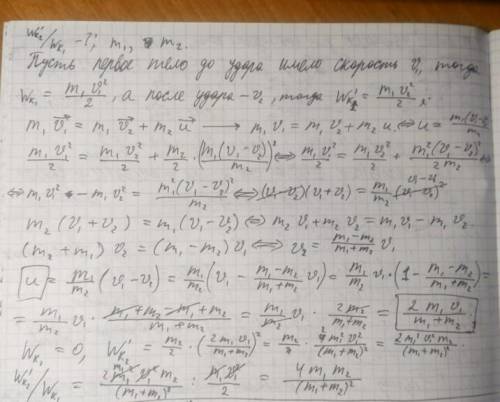 W'к₂/Wк₁ - ?; m₁, m₂.
Пусть первое тело до удара имело скорость v₁, тогда
Wк₁ = m₁v₁²/2, а после удара - v₂, тогда W'к₁ = m₁v₂²/2.
m₁v⃗₁ = m₁v⃗₂ + m₂u⃗ ⟶ m₁v₁ = m₁v₂ + m₂u ⟺ u = m₁(v₁-v₂)/m₂
m₁v₁²/2 = m₁v₂²/2 + m₂/2 · (m₁(v₁-v₂)/m₂)² ⟺ m₁v₁²/2 = m₁v₂²/2 + m₁²(v₁-v₂)²/2m₂ ⟺
⟺ m₁v₁² - m₁v₂² = m₁²(v₁-v₂)²/m₂ ⟺ (v₁-v₂)(v₁+v₂) = m₁/m₂ (v₁-v₂)² v₁-v₂
m₂(v₁+v₂) = m₁(v₁-v₂) ⟺ m₂v₁ + m₂v₂ = m₁v₁ - m₁v₂
(m₂+m₁)v₂ = (m₁-m₂)v₁ ⟺ v₂ = (m₁-m₂)/(m₁+m₂) v₁
u = m₁/m₂ (v₁-v₂) = m₁/m₂ (v₁ - (m₁-m₂)/(m₁+m₂) v₁) = m₁/m₂ v₁ · (1 - (m₁-m₂)/(m₁+m₂)) =
= m₁/m₂ v₁ · (m₁+m₂-m₁+m₂)/(m₁+m₂) = m₁/m₂ v₁ · 2m₂/(m₁+m₂) = 2m₁v₁/(m₁+m₂)
Wк₂ = 0, W'к₂ = m₂/2 · (2m₁v₁/(m₁+m₂))² = m₂/2 · 4m₁²v₁²/(m₁+m₂)² = 2m₁²v₁²m₂/(m₁+m₂)²
W'к₂/Wк₁ = 2m₁²v₁²m₂/(m₁+m₂)² : m₁v₁²/2 = 4m₁m₂/(m₁+m₂)²